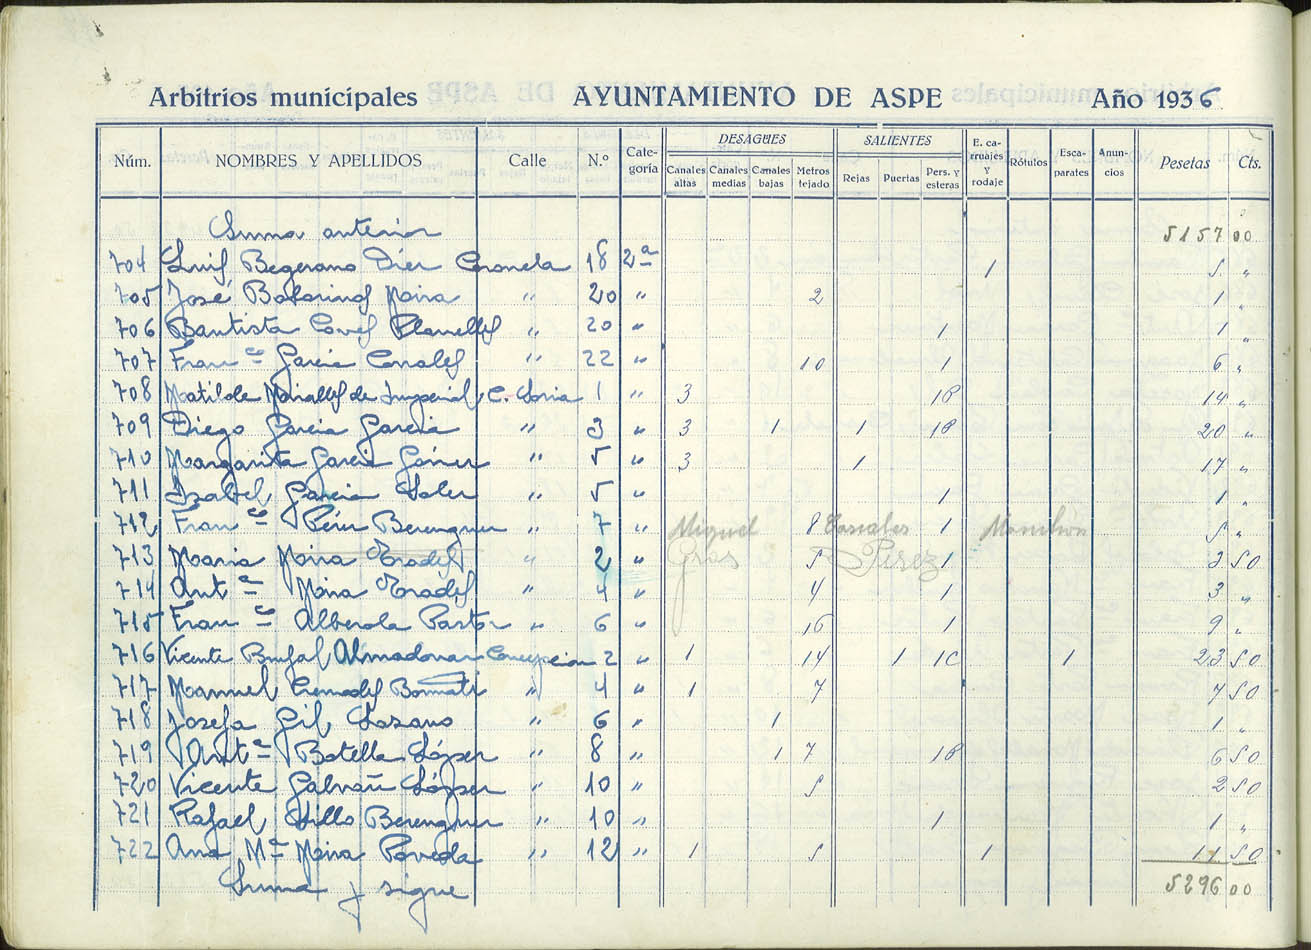 Arbitrios municipales AYUNTAMIENTO DE ASPE Año 1936
Núm. NOMBRES Y APELLIDOS Calle N.º Cate-goría DESAGÜES Canales altas Canales medias Canales bajas Metros tejado SALIENTES Rejas Puertas Pers. y esteras E. ca-rruajes y rodaje Rótulos Esca-parates Anun-cios Pesetas Cts.
Suma anterior 5157 00
704 Luis Begerano Díer Coronela 18 2ª 1 5 "
705 José Mira " 20 " 2 1 "
706 Bautista Planelles " 20 " 1 1 "
707 Franco García " 22 " 10 1 6 "
708 Matilde de Imperial C. Soria 1 " 3 1P 14 "
709 Diego García García " 3 " 3 1 1 1P 20 "
710 Margarita García Gómer " 5 " 3 1 17 "
711 Isabel García Soler " 5 " 1 1 "
712 Franco Pérer Berenguer " 7 " Miguel 8 Cascales 1 Manchón 5 "
713 María Mira Pradés " 2 " Gras 5 Pérez 1 3 50
714 Antª Mira Pradés " 4 " 4 1 3 "
715 Franco Alberola Pastor " 6 " 16 1 9 "
716 Vicente Brufal Almodovar Concepción 2 " 1 14 1 1C 1 23 50
717 Manuel Cremades Bonmatí " 4 " 1 7 7 50
718 Josefa Gil Lozano " 6 " 1 1 "
719 Antª Botella Lóper " 8 " 1 7 1P 6 50
720 Vicente Galvañ Lóper " 10 " 5 2 50
721 Rafael Sillo Berenguer " 10 " 1 1 "
722 Ana Mª Mira Poveda " 12 " 1 5 1 11 50
Suma y sigue 5296 00